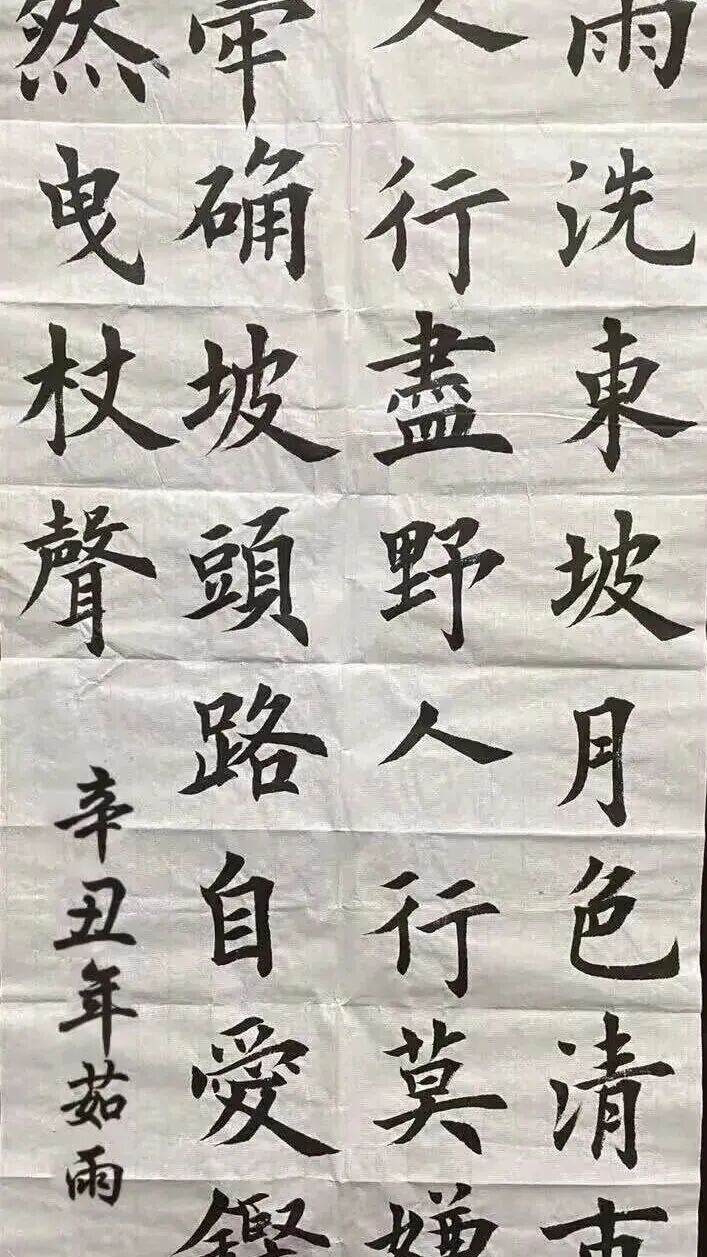 雨洗東坡月色清市
人行盡野人行莫嫌
犖确坡頭路自愛鏗
然曳杖聲
辛丑年茹雨